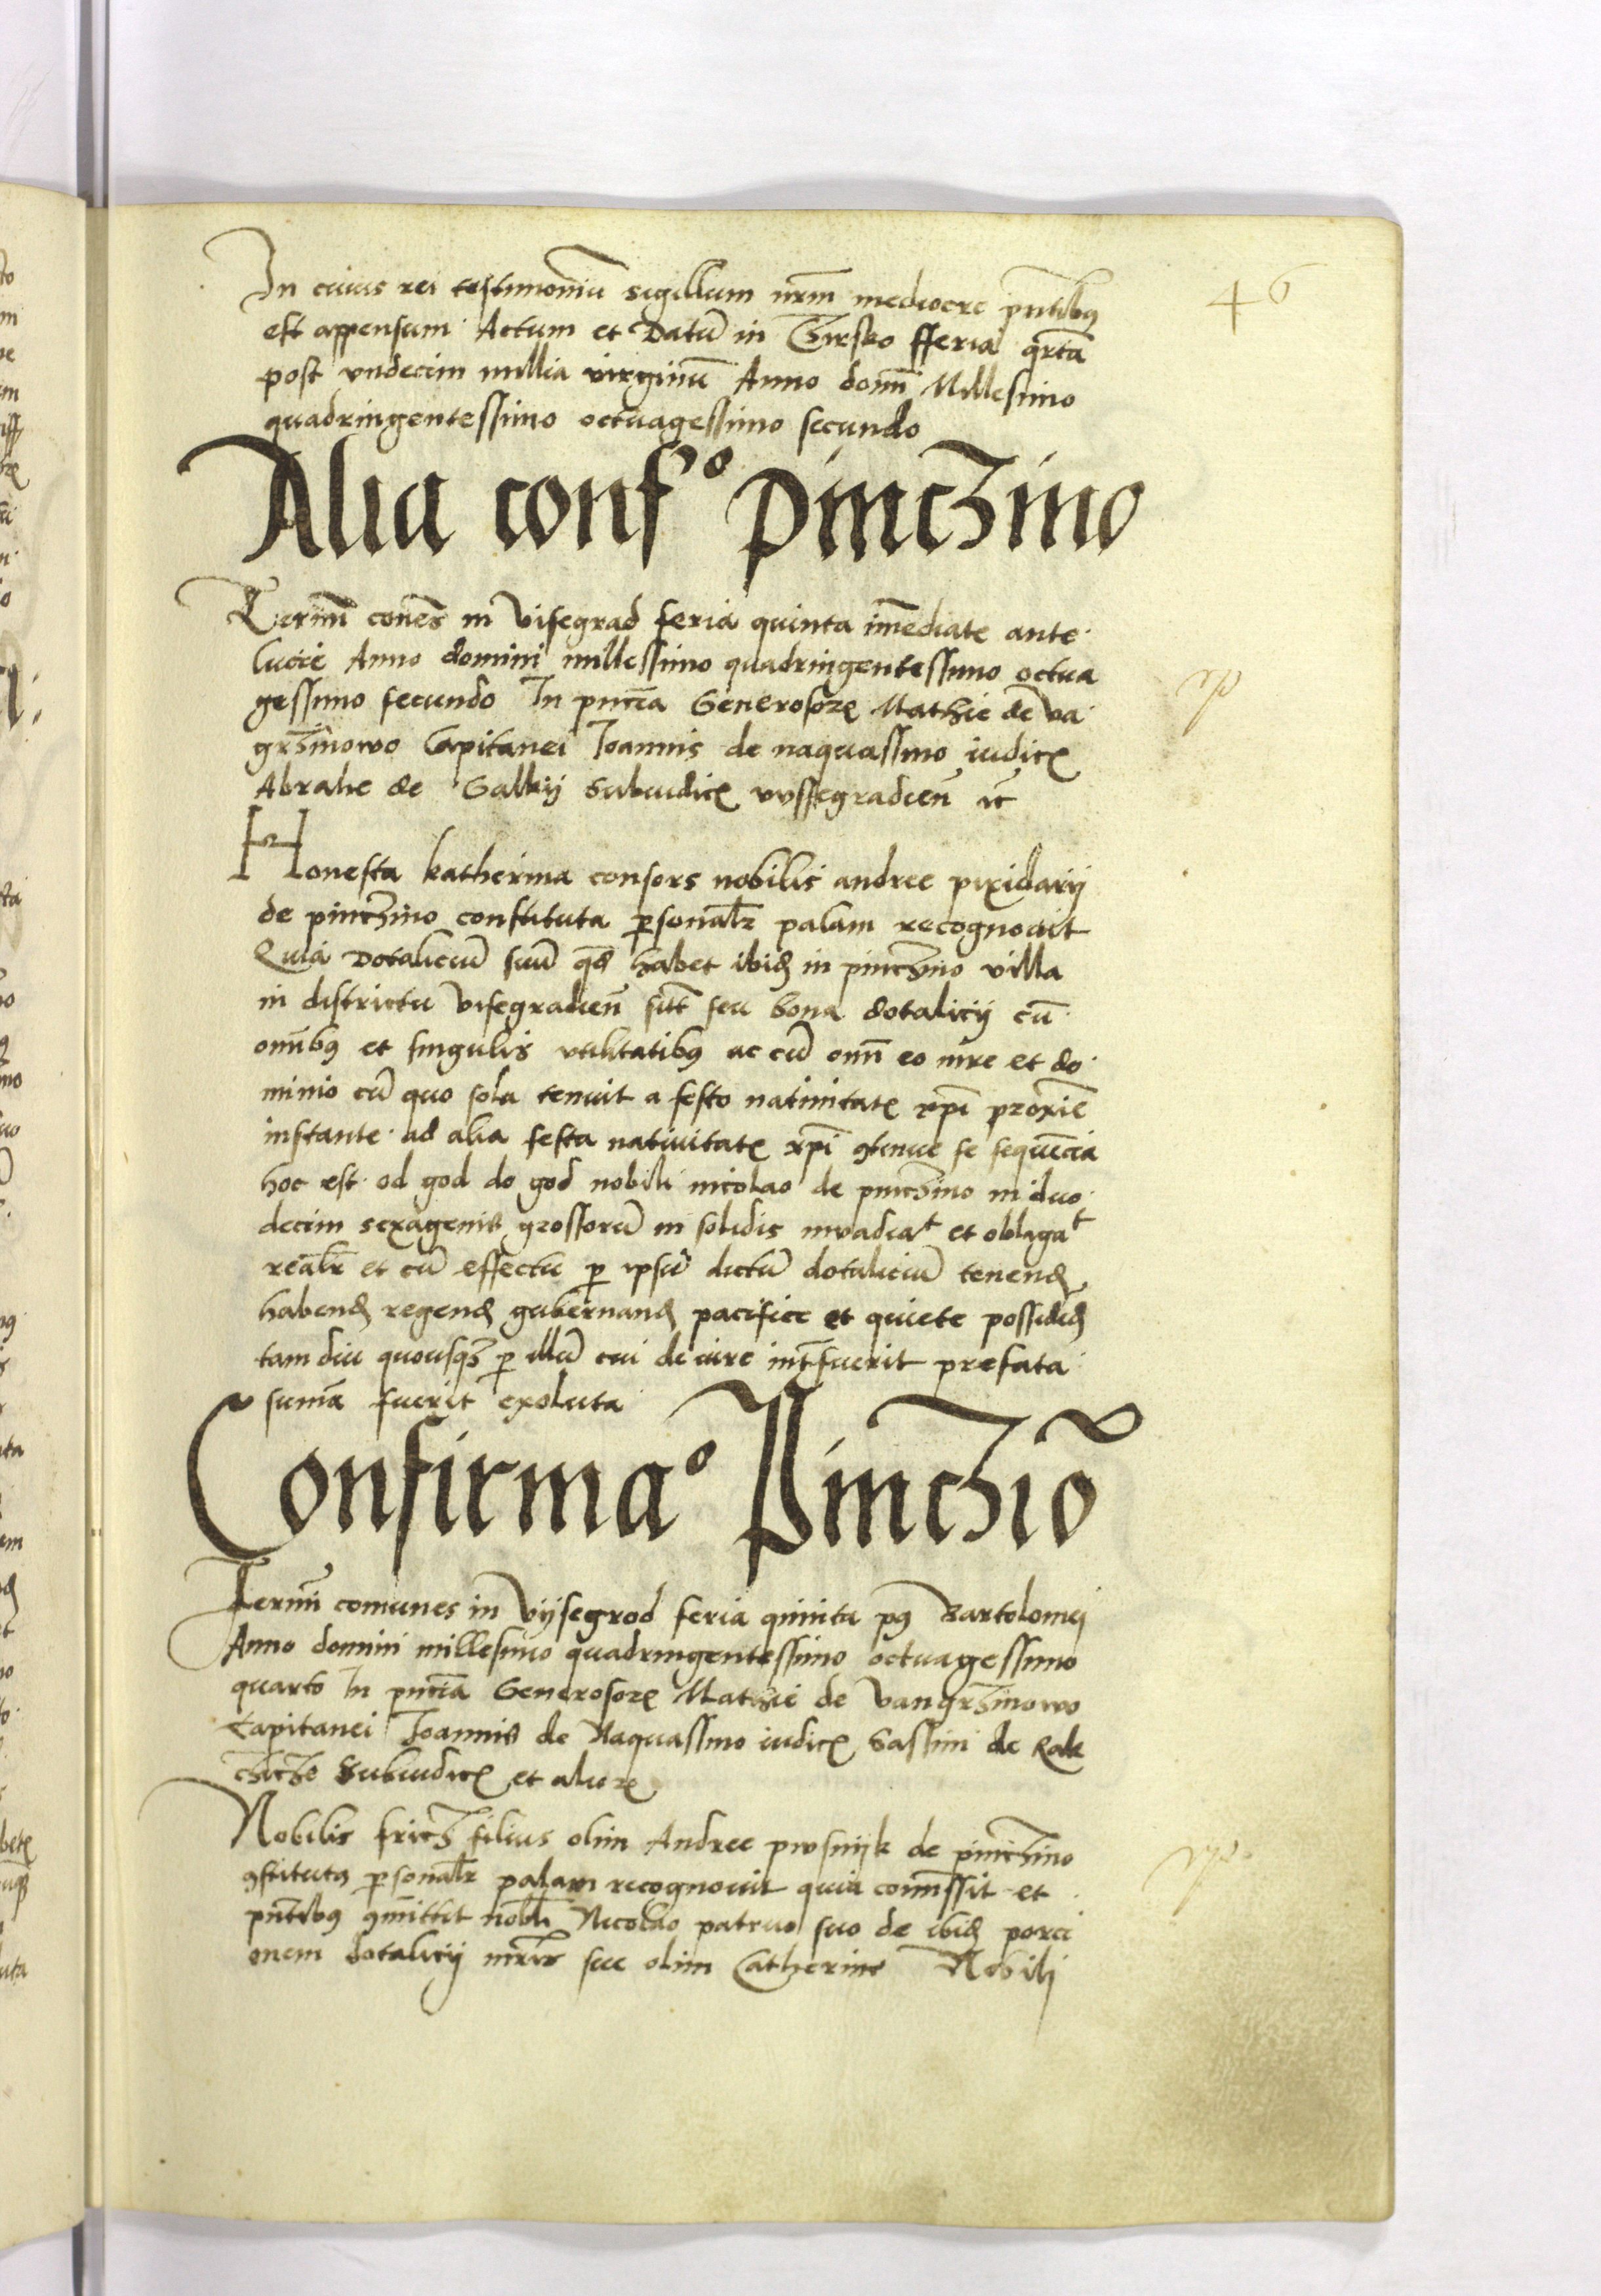 46
In cuius rei testimoniu̅ sigillum nr̅m mediocre pn̅tibꝰ
est appensum Actum et Datu̅ in Czirsko fferia qr̅ta
post vndecim millia virginu̅ Anno dom̅ Millesimo
quadringentessimo octuagessimo secundo
Alia confº pinczino
Termi̅ co̅nes in Visegrad feria quinta im̅ediate ante
lucie Anno domini millessimo quadringentessimo octua
gessimo secundo In pn̅cia Generosoꝝ Mathie de va
grzinowo Capitanei Joannis de naquassino iudicꝭ
Abrahe de Galkij Subiudicꝭ vyssegradien̅ ꝛc̅
Honesta katherina consors nobilis andree pixidarij
de pinczino constituta ꝑsonalr̅ palam recognouit
Quia Dotaliciu̅ suu̅ qd̅ habet ibid̅ in pinczino villa
in districtu visegradien̅ sitt̅ seu bona dotalicij cu̅
omibꝰ et singulis vtilitatibꝰ ac cu̅ omi̅ eo iure et do
minio cu̅ quo sola tenuit a festo natiuitatꝭ xp̅i proxie̅
instante ad alia festa natiuitatꝭ xp̅i ꝯtinue se seque̅cia
hoc est od god do god nobili nicolao de pinczino in duo
decim sexagenis grossoru̅ in solidis inuadiaᵗ et obligaᵗ
rea̅lr et cu̅ effectu ꝑ ipsu̅ dictu̅ dotaliciu̅ tenend̅
habend̅ regend̅ gubernand̅ pacifice et quiete possidd̅
tam diu quousqꝫ ꝑ illu̅ cui de iure int̅fuerit prefata
sum̅a fuerit exoluta
Confirmaº Pinczio̅
Termi̅ comunes in Vijsegrod feria quinta pꝰ Bartolomej
Anno domini millesimo quadringentessimo octuagessimo
quarto In pn̅cia Generosoꝝ Mathie de Vangrzinowo
Capitanei Joannis de Naquassino iudicꝭ Sassini de Rak
cziche Subiudicꝭ et alioꝝ
Nobilis fricz filius olim Andree pwsnijk de pinczino
ꝯstitutꝰ ꝑsonalr̅ palam recognouit quia com̅issit et
pn̅tibꝰ ꝯmittit nobl̅i Nicolao patruo suo de ibid̅ porci
onem dotalicij mr̅is sue olim Catherine Nobilj